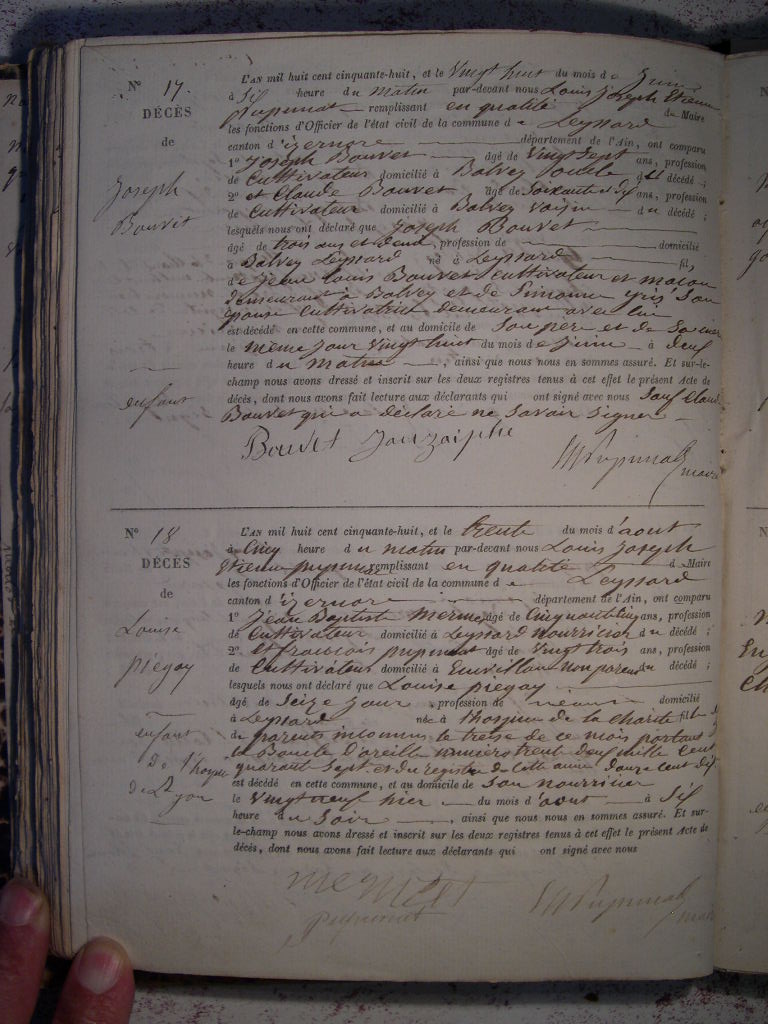 N° 17.
DÉCÈS
de
Joseph
Bouvet
enfant
L'AN mil huit cent cinquante-huit, et le Vingt huit du mois de Juin
à Six heure du matin par-devant nous Louis Joseph Etienne
Pupunat remplissant en qualité de Maire
les fonctions d'Officier de l'état civil de la commune de Leyssard
canton d'izernore département de l'Ain, ont comparu
1° Joseph Bouvet âgé de Vingt Sept ans, profession
de Cultivateur domicilié à Balvey du décédé ;
2° et Claude Bouvet âgé de Soixante et Six ans, profession
de Cultivateur domicilié à Balvey Voisin du décédé ;
lesquels nous ont déclaré que Joseph Bouvet
âgé de trois ans et demi, profession de domicilié
à Balvey Leyssard né à Leyssard fils,
de Jean Louis Bouvet Cultivateur et maçon
demeurant à Balvey et de Simonne gris Son
épouse Cultivatrice demeurant avec lui
est décédé en cette commune, et au domicile de Son père et de Sa mère
le même jour Vingt huit du mois de Juin à deux
heure du matin, ainsi que nous nous en sommes assuré. Et sur-le-
champ nous avons dressé et inscrit sur les deux registres tenus à cet effet le présent Acte de
décès, dont nous avons fait lecture aux déclarants qui ont signé avec nous Sauf Claude
Bouvet qui a déclaré ne Savoir Signer
Bouvet
Pupunat maire
N° 18
DÉCÈS
de
Louise
piégay
enfant
De l'hospice
de Lyon
L'AN mil huit cent cinquante-huit, et le trente du mois d'aout
à Cinq heure du matin par-devant nous Louis Joseph
Etienne pupunat remplissant en qualité de Maire
les fonctions d'Officier de l'état civil de la commune de Leyssard
canton d'izernore département de l'Ain, ont comparu
1° Jean Baptiste mermet âgé de Cinquante Cinq ans, profession
de Cultivateur domicilié à Leyssard nourricier du décédé ;
2° et francois pupunat âgé de Vingt trois ans, profession
de Cultivateur domicilié à non parent du décédé ;
lesquels nous ont déclaré que Louise piégay
âgé de Seize jour, profession de domicilié
à Leyssard née à l'hospice de la Charité fille
de parents inconnus le treise de ce mois portant
la Boucle d'oreille numero trente deux mille Cent
quarante Sept. et du registre de cette année douze Cent dix
est décédé en cette commune, et au domicile de Son nourricier
le Vingt neuf hier du mois d'aout à Six
heure du Soir, ainsi que nous nous en sommes assuré. Et sur-
le-champ nous avons dressé et inscrit sur les deux registres tenus à cet effet le présent Acte de
décès, dont nous avons fait lecture aux déclarants qui ont signé avec nous
mermet
pupunat
Pupunat maire